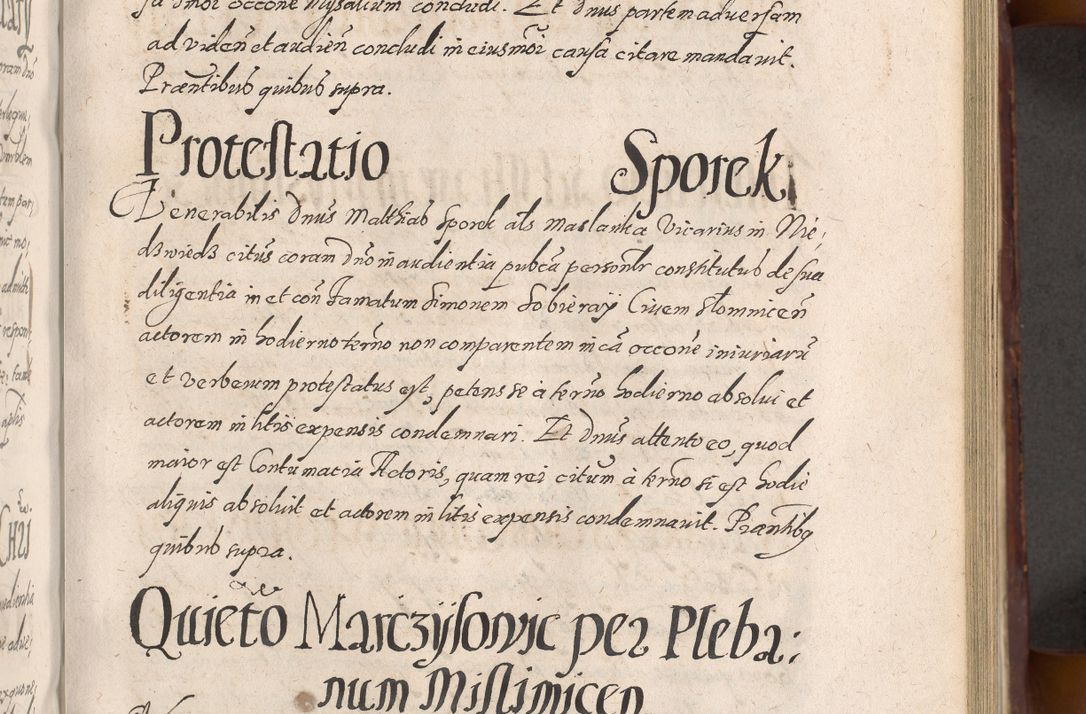 sa dmoi occone Mysalium concludi. Et Dnus partem adversam
ad viden et audien concludi in eiusmoi causa citare mandavit.
Præntibus quibus supra.
Protestatio Sporek
Venerabilis Dnus Matthias Sporek als Maslanka Vicarius in Nie,
dzwiedz citus coram Dno in audientia pubca personlr constitutus de sua
diligentia in et con famatum Simonem Sobieraij Civem Slomnicen
actorem in hodierno termo non comparentem in ca occone iniuriaru
et verberum protestatus est, petens se à termo hodierno absolvi et
actorem in litis expensis condemnari. Et Dnus attento eo, quod
maior est Contumacia Actoris, quam rei citum à termo si est hodie
aliquis absolvit et actorem in litis expensis condemnavit. Præntibq
quibus supra.
Quieto Marczijsowic per Pleba:
num Mistimicen